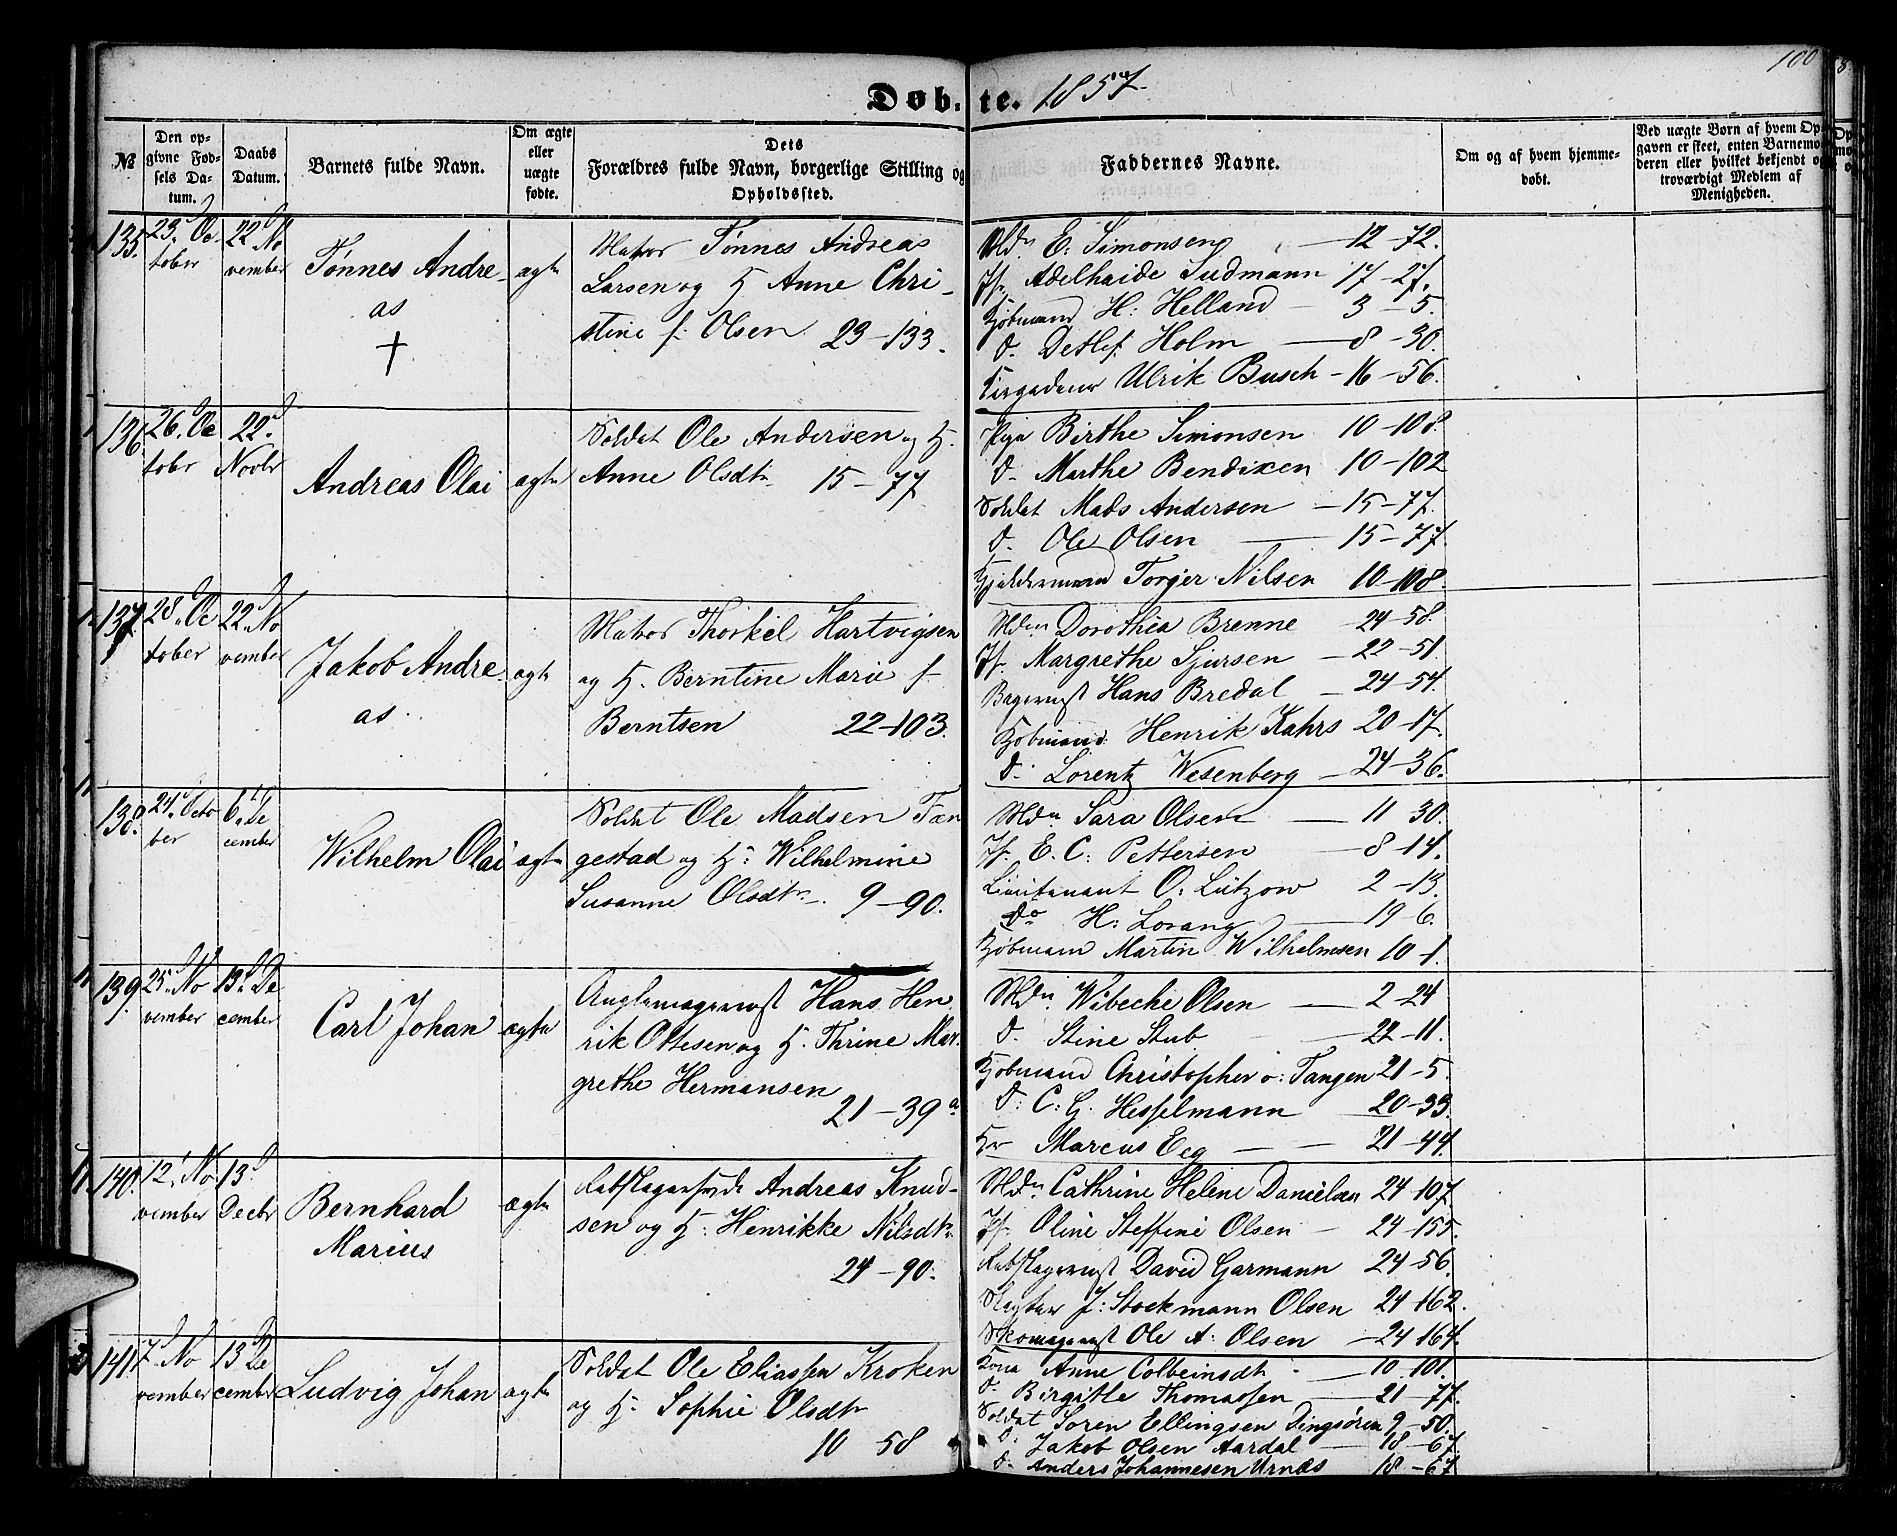 100
Døb-te. 1857.
№
Den opgivne Fødsels Datum.
Daabs Datum.
Barnets fulde Navn.
Om ægte eller uægte fødte.
Dets Forældres fulde Navn, borgerlige Stilling og Opholdssted.
Faddernes Navne.
Om og af hvem hjemmedøbt.
Ved uægte Børn af hvem Opgaven er skeet, enten Barnemoderen eller hvilket bekjendt og troværdigt Medlem af Menigheden.
135.
23d Oc-
tober
22d No
vember
Tønnes Andre-
as
†
ægte
Matros Tønnes Andreas
Larsen og H. Anne Chri-
stine f. Olsen 23-133.
Mdm E: Simonsen 12-72.
Jfr. Adelhaide Sudmann 17-27.
Kjøbmand H: Helland 3-5.
D. Detlef Holm 8-30.
Ulrik Busch 16-56.
136.
26d Oc
tobr
22d
Novbr
Andreas Olai
ægte
Soldat Ole Andersen og H.
Anne Olsdtr 15-77
Pige Birthe Simonsen 10-108.
D. Marthe Bendixen 10-102
Soldat Mads Andersen 15-77.
D. Ole Olsen 15-77.
Torger Nilsen 10-108.
137.
28d Oc
tober
22d No
vember
Jakob Andre-
as.
ægte
Matros Thorkel Hartvigsen
og H. Berntine Marie f.
Berntsen 22-103.
Mdm Dorothea Brenne 24-58.
Jfr. Margrethe Sjursen 22-51.
Bagersvst Hans Bredal 24-54.
Kjøbmand Henrik Kahrs 20-17.
D. Lorentz Wesenberg 24-36.
138.
24d Octo
ber
6te De
cember
Wilhelm Olai
ægte
Soldat Ole Madsen Tan
gestad og H: Wilhelmine
Susanne Olsdtr. 9-90.
Mdm Sara Olsen 11-30.
Jfr. E. C: Pettersen 8-14.
Lieutenant O: Lützow 2-13.
Do H: Lorang 19-6.
Kjøbmand Martin Wilhelmsen 10-1.
139.
25d No
vember
13d De
cember
Carl Johan
ægte
Hans Hen
rik Ottesen og H. Thrine Mar-
grethe Hermansen
21-39a
Mdm Wibecke Olsen 2-24
D. Stine Stub 22-11.
Kjøbmand Christopher v: Tangen 21-5.
D: C: G. Hesselmann 20-33.
Hr Marcus Eeg 21-44.
140.
12t No
vember
13d
Decbr
Bernhard
Marius
ægte
Rebslagersvend Andreas Knud-
sen og H: Henrikke Nilsdtr.
24-90.
Mdm Cathrine Helene Danielsen 24-107
Jfr. Oline Steffine Olsen 24-155.
Rebslagersvst David Garmann 24-56.
Slagter J: Stockmann Olsen 24-162.
Skomagersvst Ole A: Olsen 24-164.
141.
7d No
vember
13d De
cember
Ludvig Johan
ægte
Soldat Ole Eliassen Kroken
og H. Sophie Olsdtr
10 58
Kona Anne Colbeinsdtr 10-101.
D. Birgitte Thomassen 21-77.
Soldat Søren Ellingsen Dingsören 9-50.
D. Jakob Olsen Aardal 18-67.
D. Anders Johannesen Urnæs 18-67